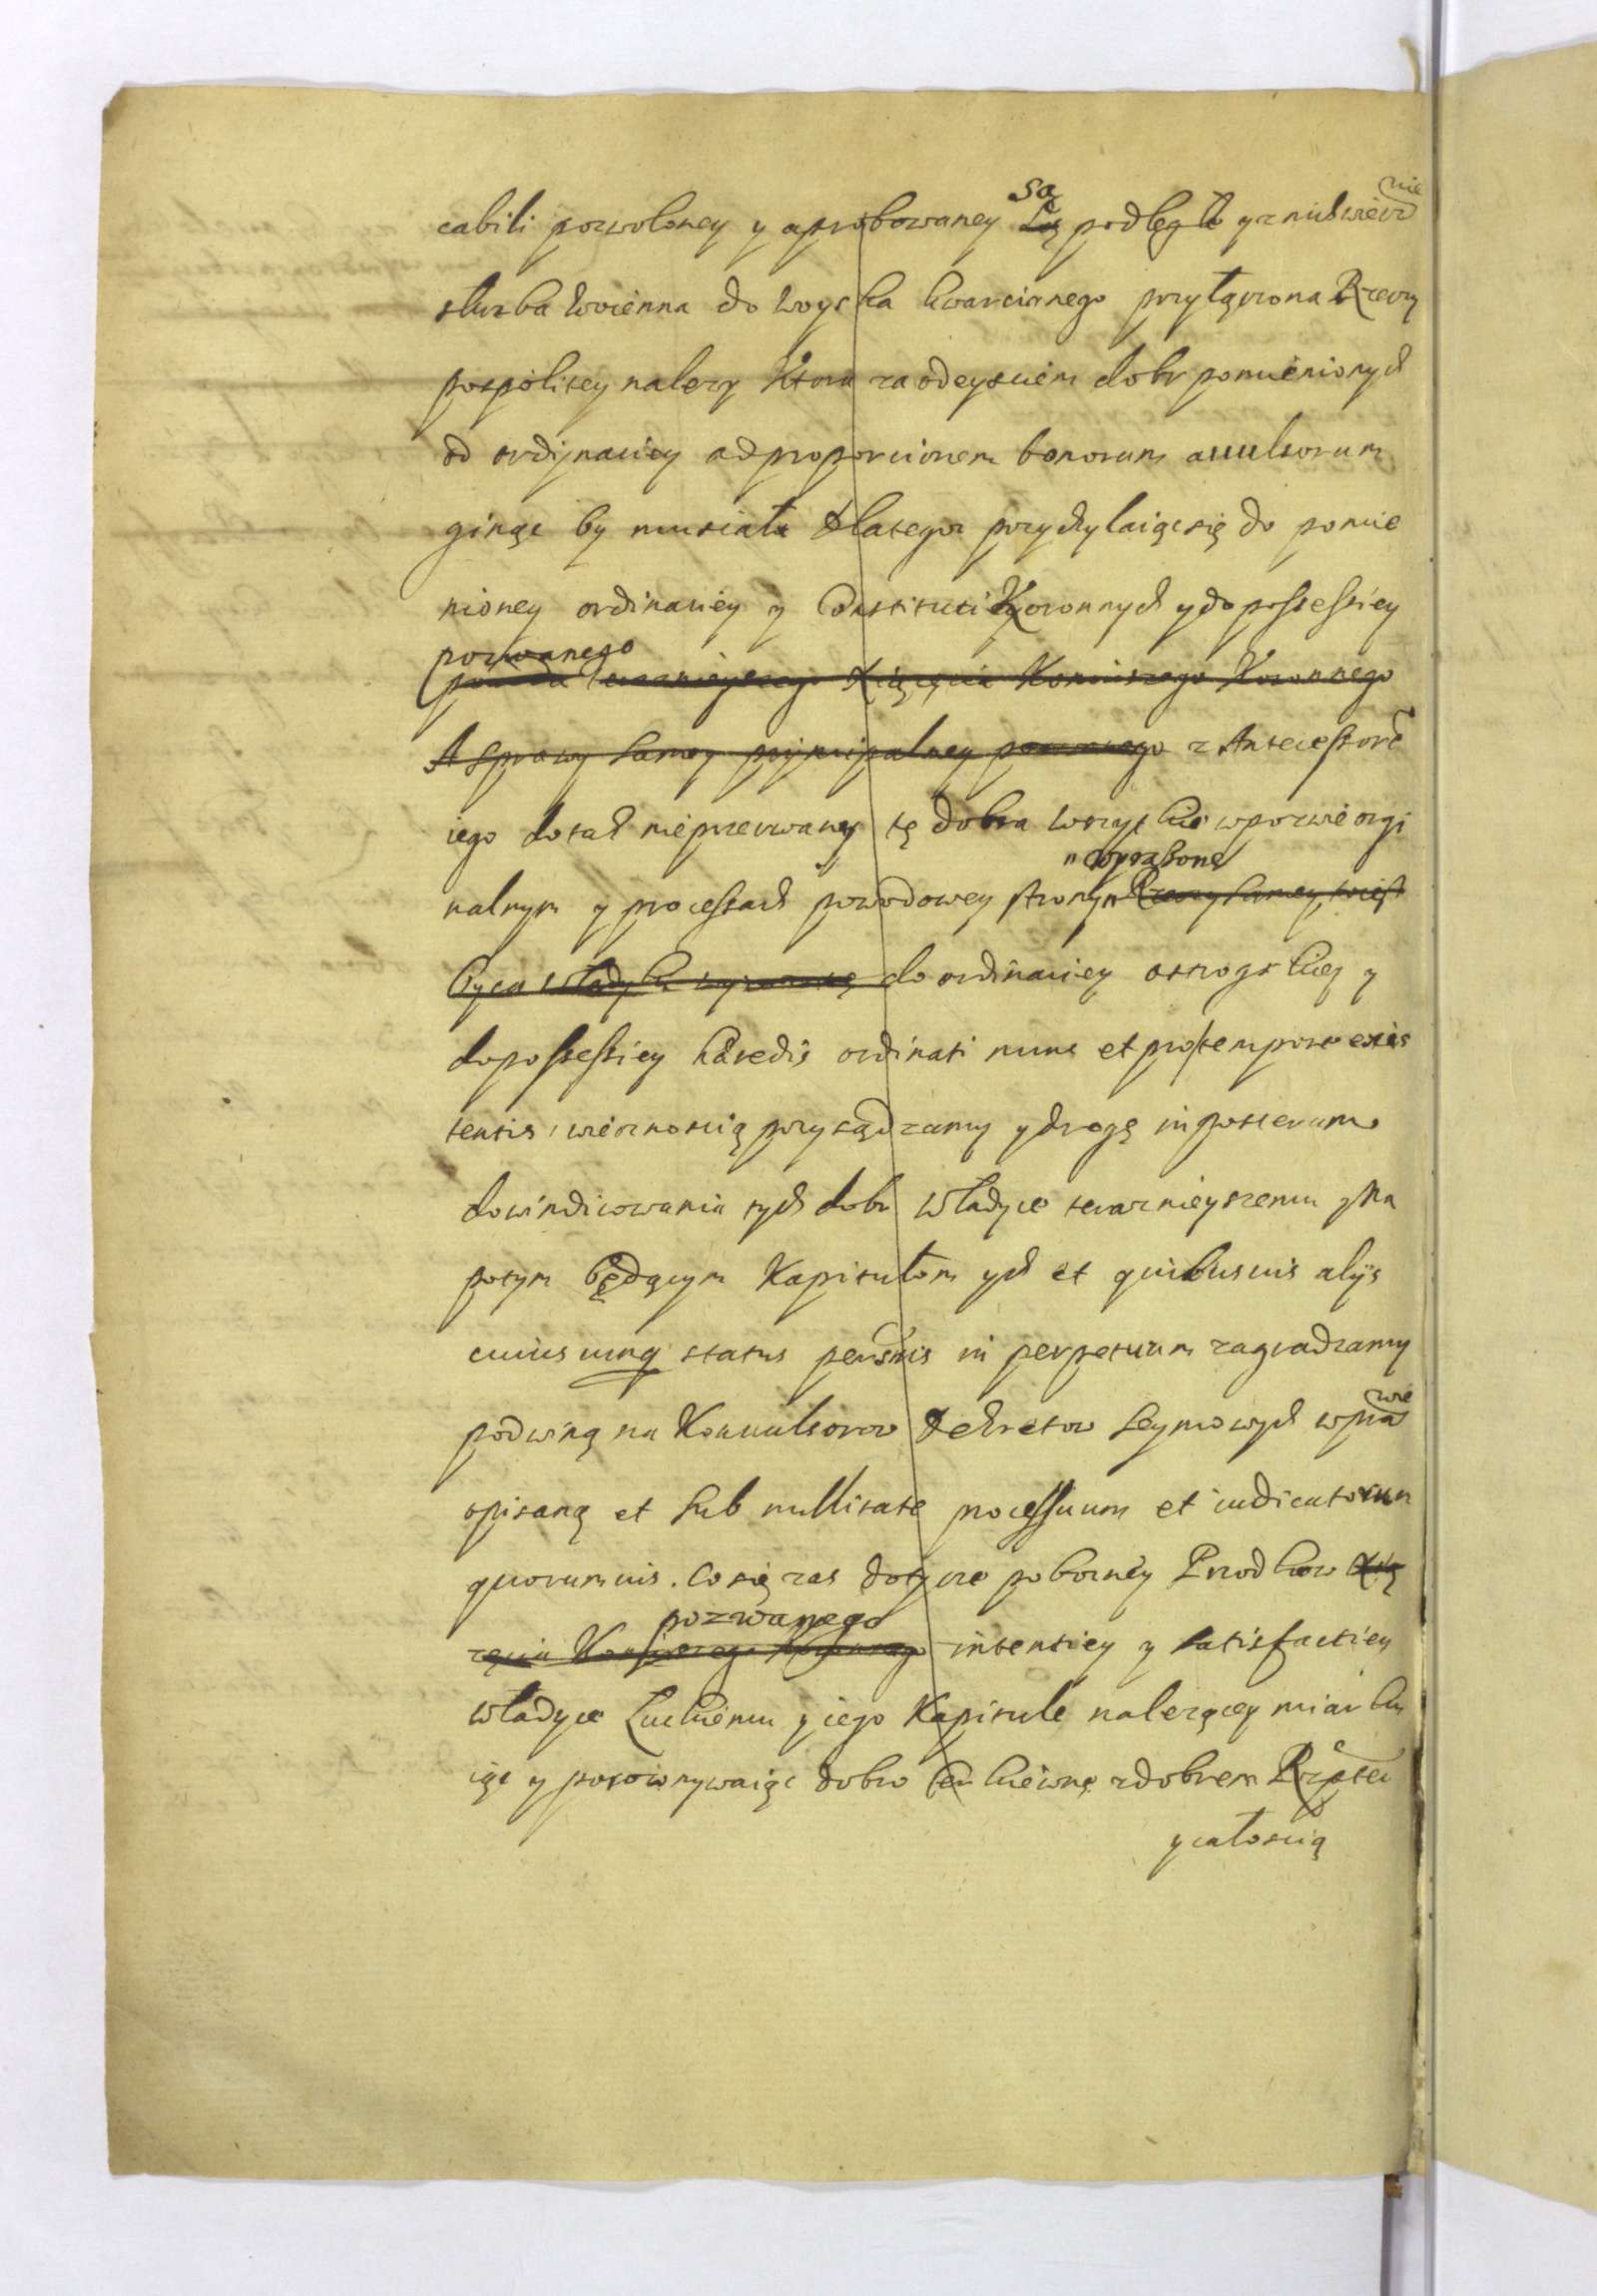 cabili pozwoloney y aprobowaney są podległe y z nich wiecznie
służba woienna do woyska kwarcianego przyłączona Rzeczy
pospolitey nalezy ktora za odeysciem dobr pomienionych
od ordynaciey ad proporcionem bonorum auulsorum
ginąc by musiała dlategoż przychylaiąc się do pomie
nioney ordinaciey y Constituciy Koronnych y do possessiey
pozwanego
Xiązęcia Koniuszego Koronnego
A sprawy samey pryncipalney z Antecessore
iego dotąd nieprzerwaney te dobra wszystkie w pozwie orgi
nalnym y processach powodowey strony Rzeczy samey
wyrażone
do ordinaciey ostrogskiey y
do possessiey haredis ordinati nunc et pro tempore exis
tentis wiecznoscią przysądzamy y drogę in posterum
do windicowania tych dobr władyce teraznieyszemu y na
potym będącym Kapitułom ych et quibusuis alijs
cuiuscunq status personis in perpetuum zagradzamy
pod winą na Konuulsorow dekretow seymowych w prawie
opisaną et sub nullitate processuum et iudicatorum
quorumuis. Co się zas dotycze pobozney Przodkow Xią
zęcia Koniuszego Koronnego
pozwanego
intentiey y satisfactiey
władyce Łuckiemu y iego Kapitule nalezącey miarku
iąc y porownywaiąc dobro cerkiewne z dobrem Rzptey
y całoscią